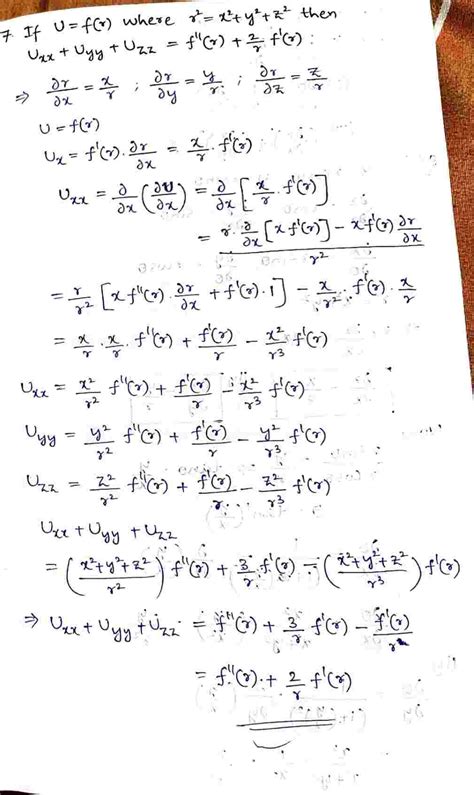 7. If U=f(r) where r²=x²+y²+z² then
Uxx+Uyy+Uzz = f''(r)+2/r f'(r) :
⇒ ∂r/∂x = x/r ; ∂r/∂y = y/r ; ∂r/∂z = z/r
U=f(r)
Ux = f'(r)·∂r/∂x = x/r · f'(r)
Uxx = ∂/∂x (∂u/∂x) = ∂/∂x [x/r · f'(r)]
= (r·∂/∂x [x f'(r)] - x f'(r) ∂r/∂x) / r²
= r/r² [x f''(r)·∂r/∂x + f'(r)·1] - x/r² · f'(r)·x/r
= x/r · x/r · f''(r) + f'(r)/r - x²/r³ f'(r)
Uxx = x²/r² f''(r) + f'(r)/r - x²/r³ f'(r)
Uyy = y²/r² f''(r) + f'(r)/r - y²/r³ f'(r)
Uzz = z²/r² f''(r) + f'(r)/r - z²/r³ f'(r)
Uxx+Uyy+Uzz
= ((x²+y²+z²)/r²) f''(r) + 3/r f'(r) - ((x²+y²+z²)/r³) f'(r)
⇒ Uxx+Uyy+Uzz = f''(r) + 3/r f'(r) - f'(r)/r
= f''(r) + 2/r f'(r)